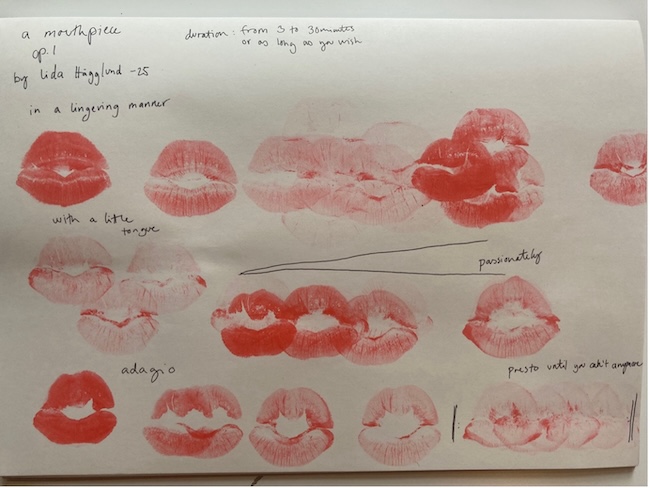 a mouthpiece
op. 1
by Lida Hägglund -25
duration: from 3 to 30 minutes
or as long as you wish
in a lingering manner
with a little
tongue
passionately
adagio
presto until you can't anymore